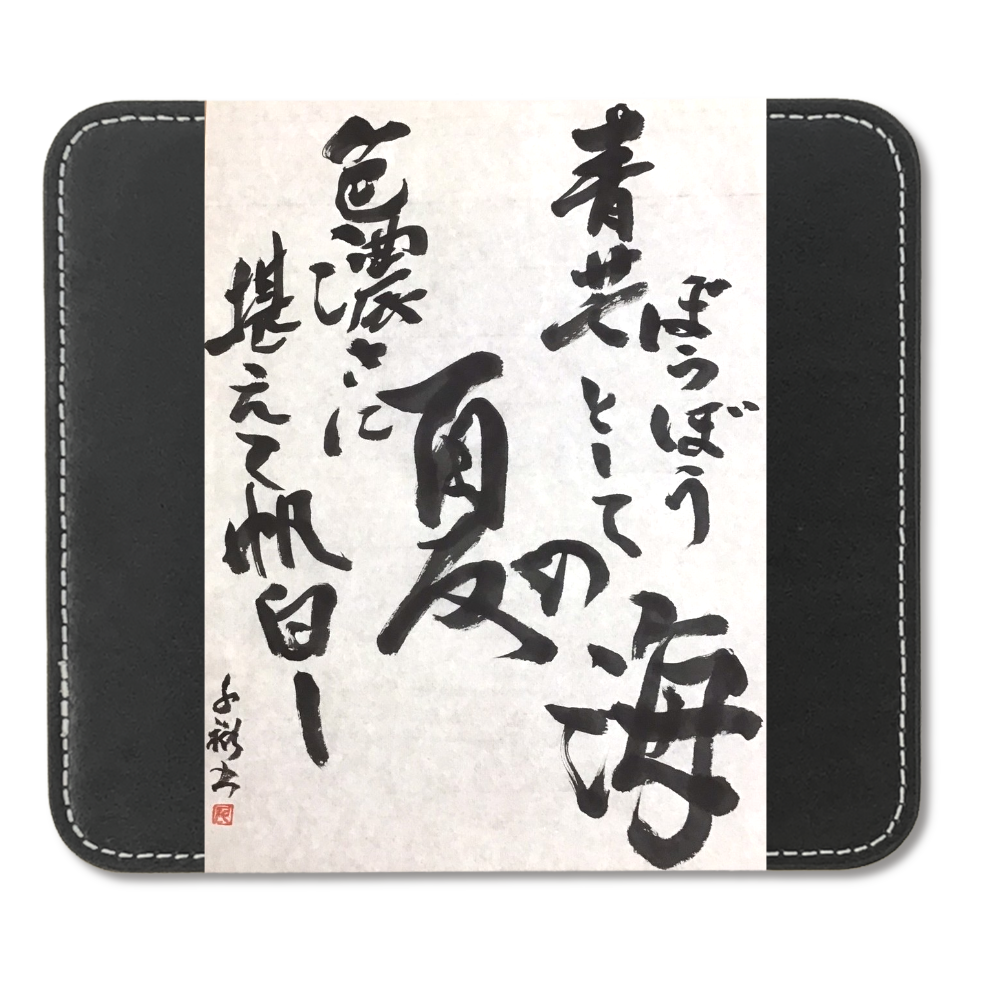 ぼうぼう
青芒として
夏の
海
色濃さに
堪えて帆白し